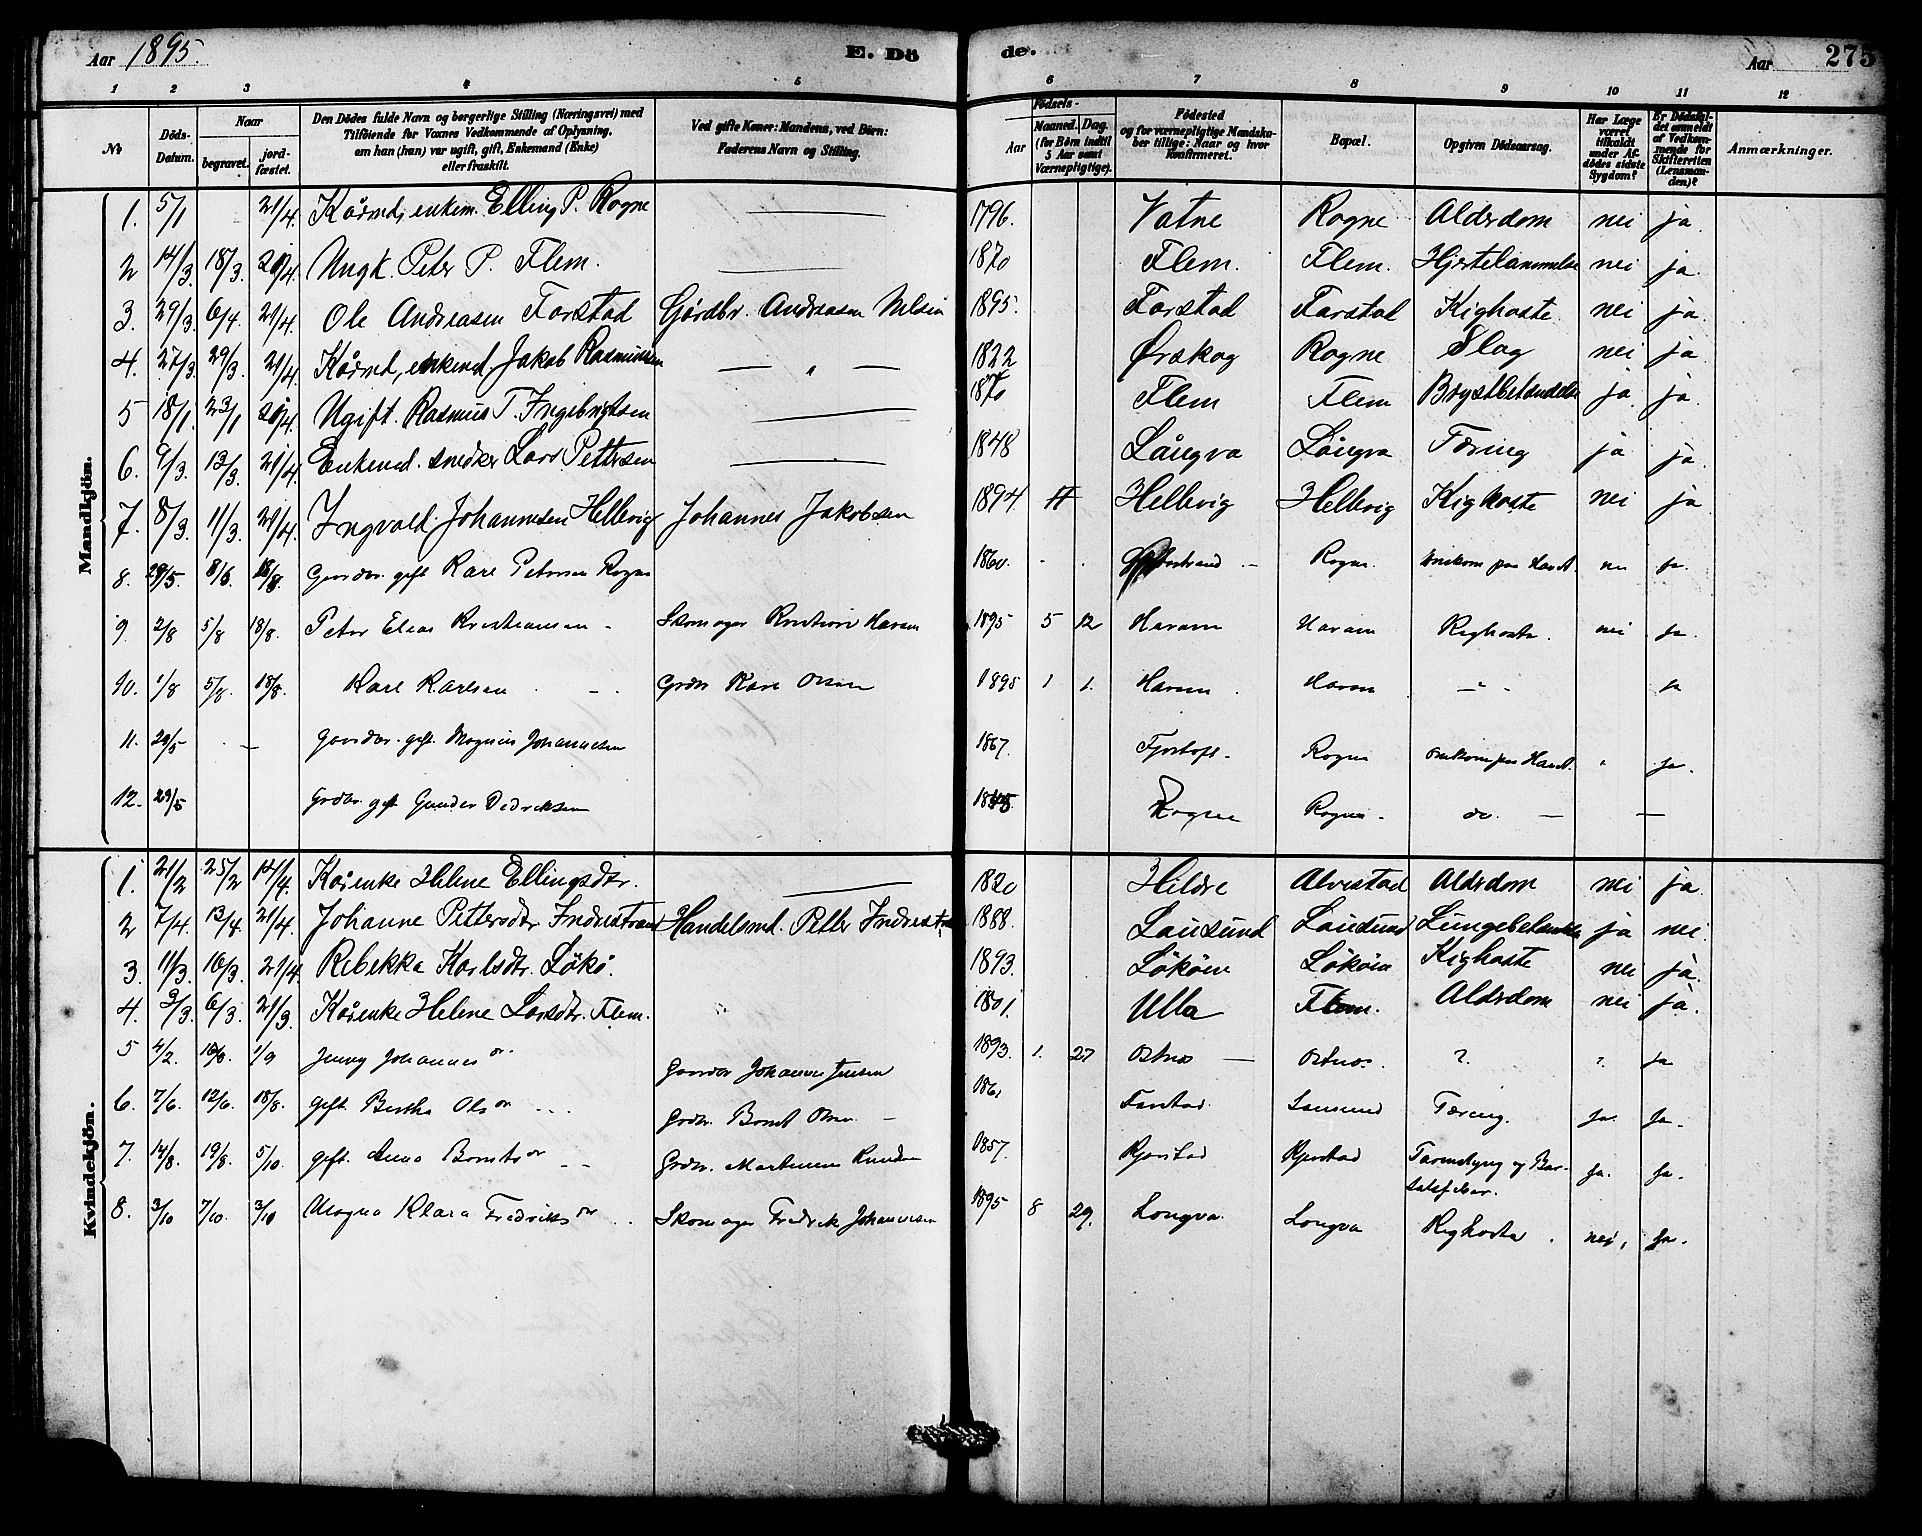 Aar 1895. E. Dö de. Aar 275
1 2 3 4 5 6 7 8 9 10 11 12
No. Döds-Datum. Naar begravet. jordfæstet. Den Dödes fulde Navn og borgerlige Stilling (Næringsvei) med Tilföiende for Voxnes Vedkommende af Oplysning, om han (hun) var ugift, gift, Enkemand (Enke) eller fraskilt. Ved gifte Koner: Mandens, ved Börn: Faderens Navn og Stilling. Födsels- Aar Maaned. Dag. (for Börn indtil 5 Aar samt Værnepligtige). Födested og for værnepligtige Mandskaber tillige: Naar og hvor konfirmeret. Bopæl. Opgiven Dödsaarsag. Har Læge været tilkaldt under Afdödes sidste Sygdom? Er Dödsfaldet anmeldt af Vedkommende for Skifteretten (Lensmanden)? Anmærkninger.
Mandkjön.
1. 5/1 21/4. Kårmd, enkem. Elling P. Rogne — 1796. Vatne Rogne Alderdom nei ja.
2 14/3 18/3 20/4. Ungk. Peter P. Flem. — 1870 Flem. Flem. Hjertelammelse nei ja.
3. 29/3. 6/4. 21/4. Ole Andreasen Farstad Gårdbr. Andreas Nelsin 1895. Farstad Farstad Kighoste. nei ja.
4. 27/3. 29/3. 21/4. Kårmd, enkemd, Jakob Rasmussen — " — 1822 Ørskog Rogne Slag nei ja.
5 18/1. 23/1 20/4. Ugift. Rasmus T. Ingebrigtsen — 1870 Flem Flem Brystbetændelse ja. ja.
6. 9/3. 13/3. 21/4. Enkemd. snedker Lars Pettersen — 1848 Långva Långva Tæring ja ja.
7. 8/3. 11/3. 21/4. Ingvald Johannesen Hellevig Johannes Jakobsen 1894 Hellevig Hellevig Kighoste nei ja
8. 29/5. 8/6. 18/8. Gaardbr. gift Karl Petersen Rogne 1860. Rogne. Omkom paa Havet. nei ja.
9 2/8 5/8 18/8. Peter Elias Kristiansen - Skomager Kristian Haram 1895 5 12 Haram Haram Kighoste. nei ja.
10. 1/8 5/8. 18/8. Karl Karlsen - Grdbr Karl Olsen 1895 1 1. Haram. Haram — " - ja
11. 29/5 — Gaardbr. gift. Magnus Johannesen 1867. Fjørtoft - Rogne omkom paa Havet. " ja.
12. 29/5 Grdbr. gift Gunder Dedriksen Rogne Rogne - do. — —
Kvindekjön.
1. 21/2 25/2 14/4. Kårenke Helene Ellingsdtr. — 1820 Hildre Alvestad Alderdom nei ja.
2 7/4. 13/4. 21/4. Johanne Pettersdtr. Indrestrand Handelsmd. Petter Indrestr. 1888. Lausund Lausund Lungebetændelse ja nei.
3. 11/3. 16/3. 21/4. Rebekka Karlsdtr. Lökö. 1893. Lököen Lököen Kighoste nei jà.
4. 3/3. 6/3. 21/3. Kårenke Helene Larsdtr. Flem. 1801. Ulla Flem. Alderdom nei jà.
5 4/2. 1/9 Jenny Johannesdr. Gaardbr Johannes Jensen 1893. 1. 27 Østnes — Østnes. ? ? ja
6. 7/6. 12/6. 18/8. gift. Bertha Olsdr. Grdbr. Bernt Olsen — 1861 Farstad. Lausund Tæring. ja. ja.
7. 14/8. 19/8. 5/10. gift. Anna Berntsdr — Grdbr. Martinius Knudsen 1857. Kjerstad Kjerstad Tarmslyng og Barselsfeber. ja. ja.
8. 3/10 7/10. 3/10 Magna Klara Fredriksdr Skomager Fredrik Johannesen 1895 8 29. Longva. Longva Kighoste. nei, ja.